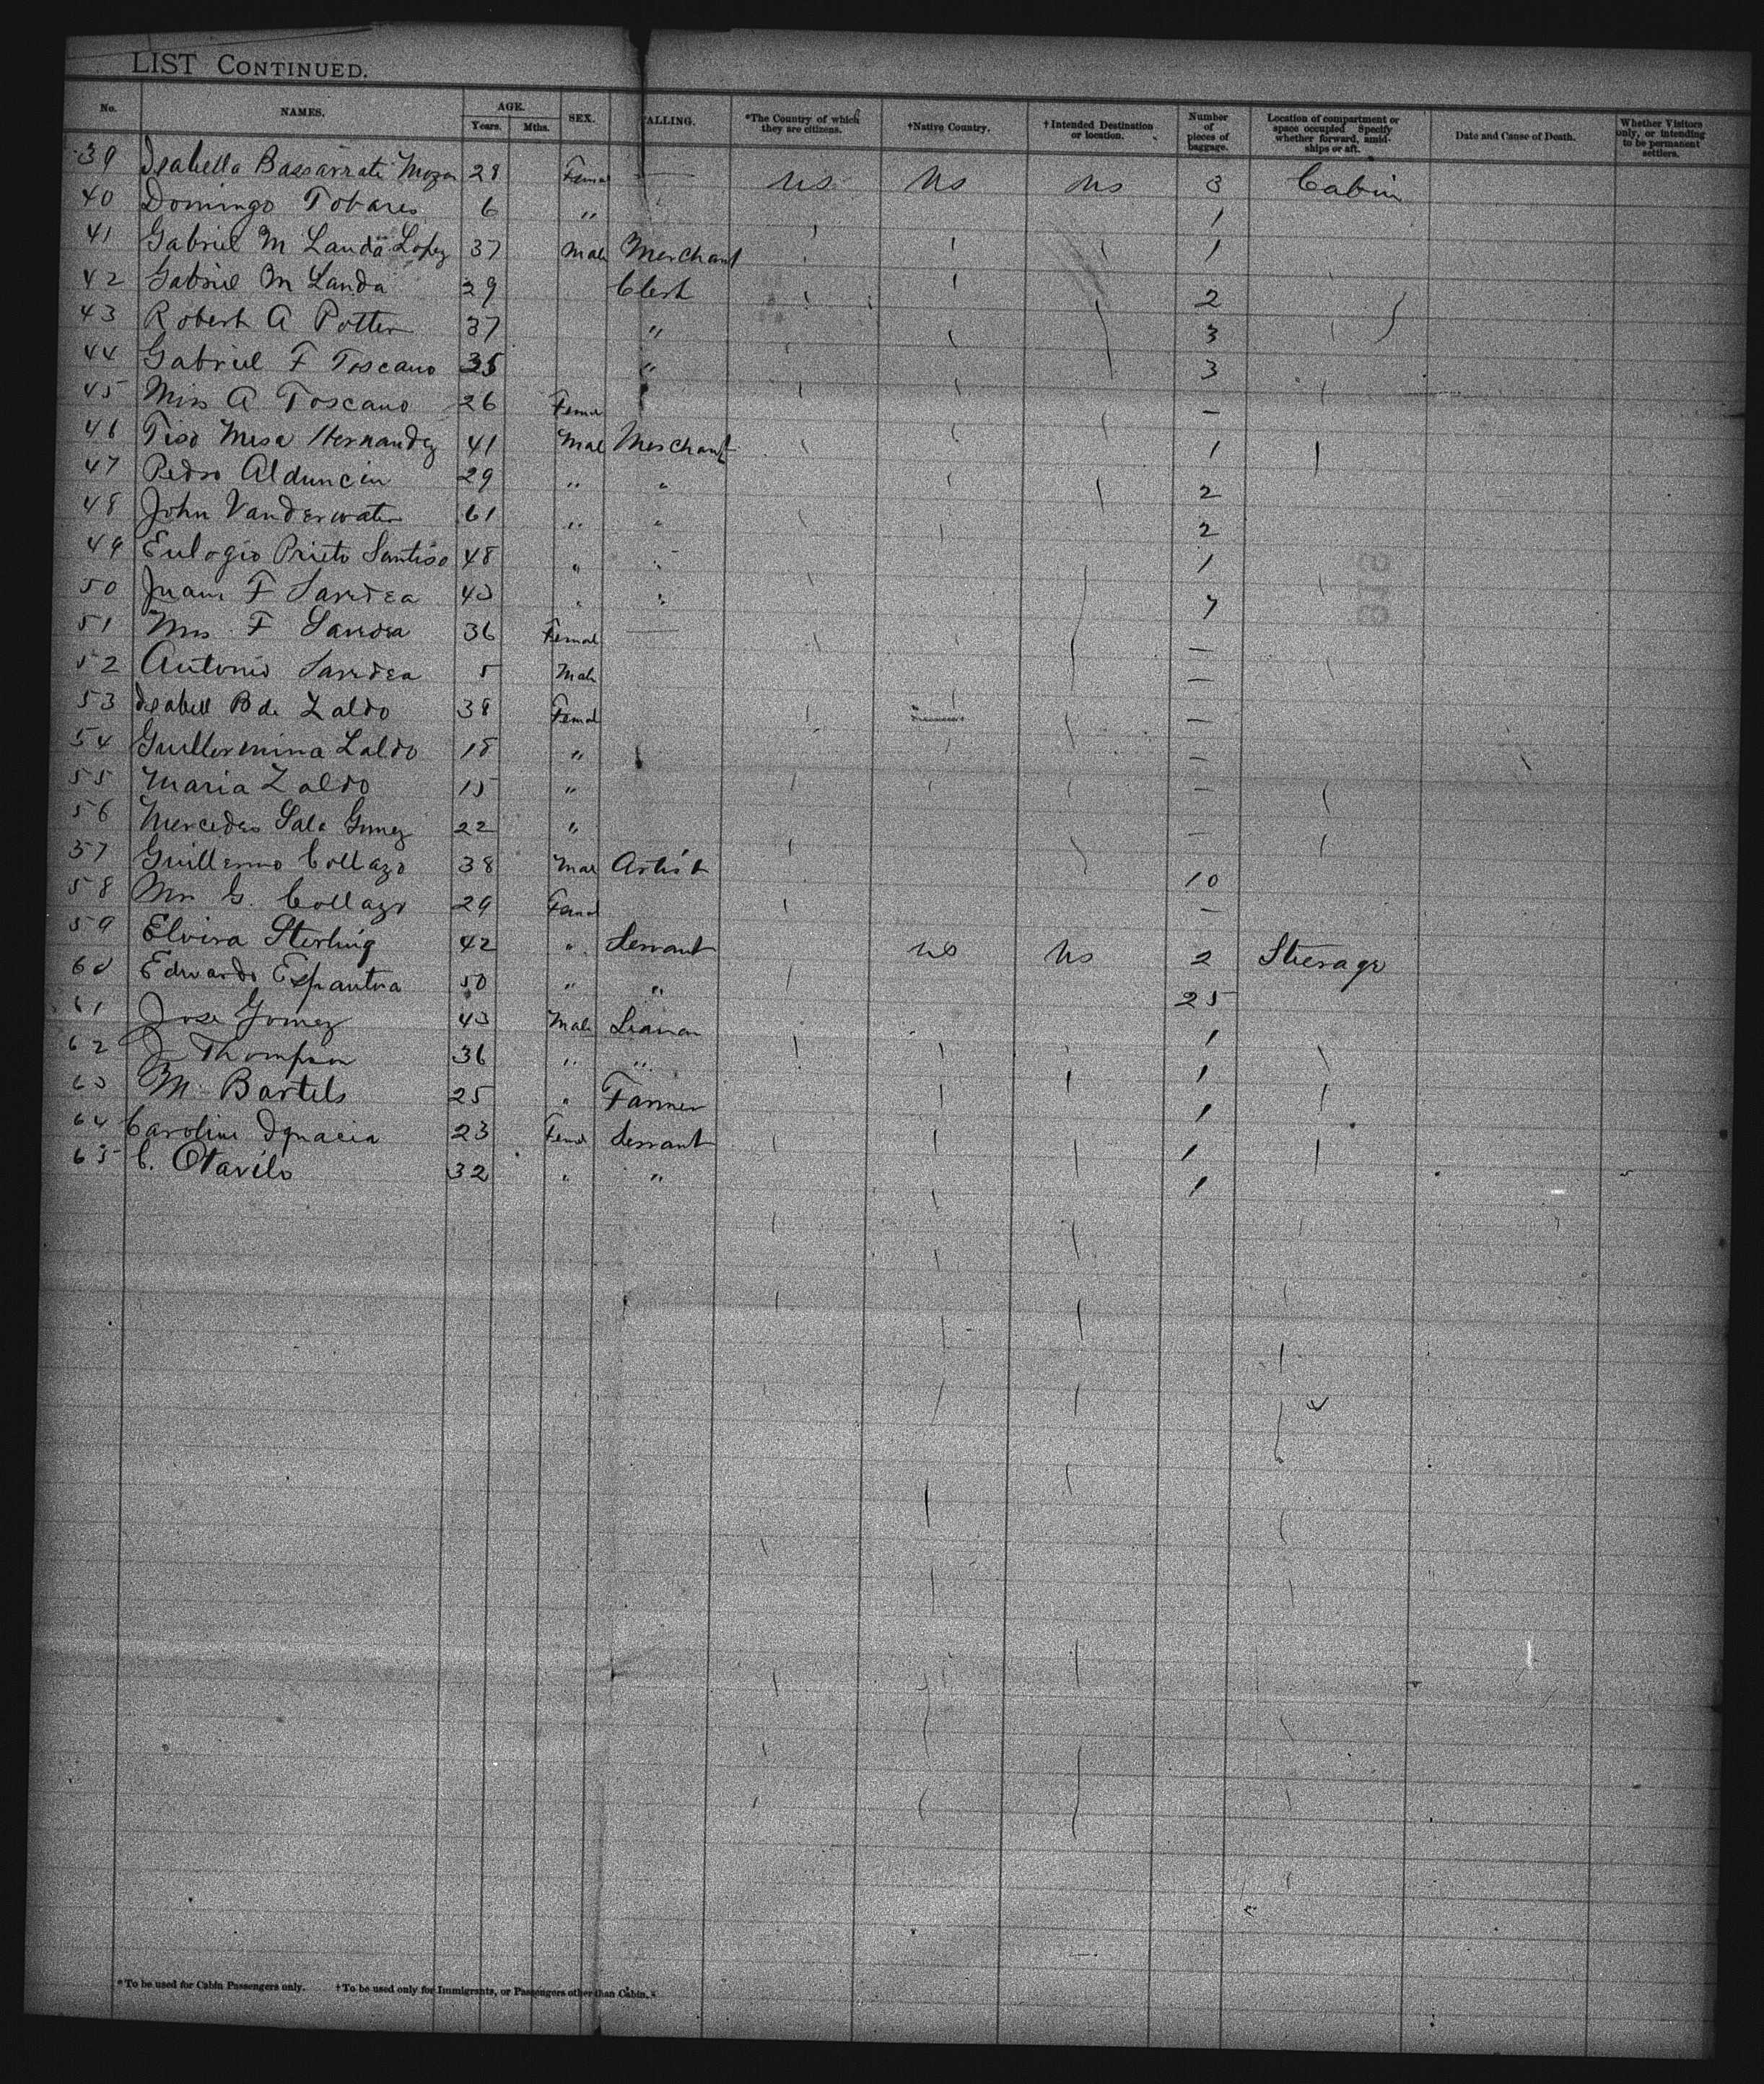 LIST CONTINUED.
No. NAMES. AGE. Years. Mths. SEX. CALLING. *The Country of which they are citizens. †Native Country. †Intended Destination or location. Number of pieces of baggage. Location of compartment or space occupied Specify whether forward, amidships or aft. Date and Cause of Death. Whether Visitors only, or intending to be permanent settlers.
39 Isabella Bassarrate 28 Femal — US US US 3 Cabin
40 Domingo Tobares 6 " 1
41 Gabriel M Landa Lopez 37 Male Merchant 1
42 Gabriel M Landa 29 Clerk 2
43 Robert A Potter 37 " 3
44 Gabriel F Toscano 35 " 3
45 Miss A Toscano 26 Femal —
46 Tiso Mesa Hernandez 41 Male Merchant 1
47 Pedro Alduncin 29 " " 2
48 John Vanderwater 61 " " 2
49 Eulogio Prieto Santiso 48 " " 1
50 Juan F 43 " " 7
51 Mrs F 36 Femal — —
52 Antonio 5 Male —
53 Isabell B de Zaldo 38 Femal —
54 Guillermina Zaldo 18 " —
55 Maria Zaldo 15 " —
56 Mercedes Sala Gomez 22 " —
57 Guillermo Collazo 38 Male Artist 10
58 Mrs G. Collazo 29 Femal —
59 Elvira Sterling 42 " Servant US US 2 Steerage
60 Edwardo 50 " " 25
61 Jose Gomez 43 Male Seaman 1
62 J Thompson 36 " " 1
63 M Bartels 25 " Farmer 1
64 Caroline Ignacia 23 Femal Servant 1
65 C. Otavilo 32 " " 1
*To be used for Cabin Passengers only. †To be used only for Immigrants, or Passengers other than Cabin.